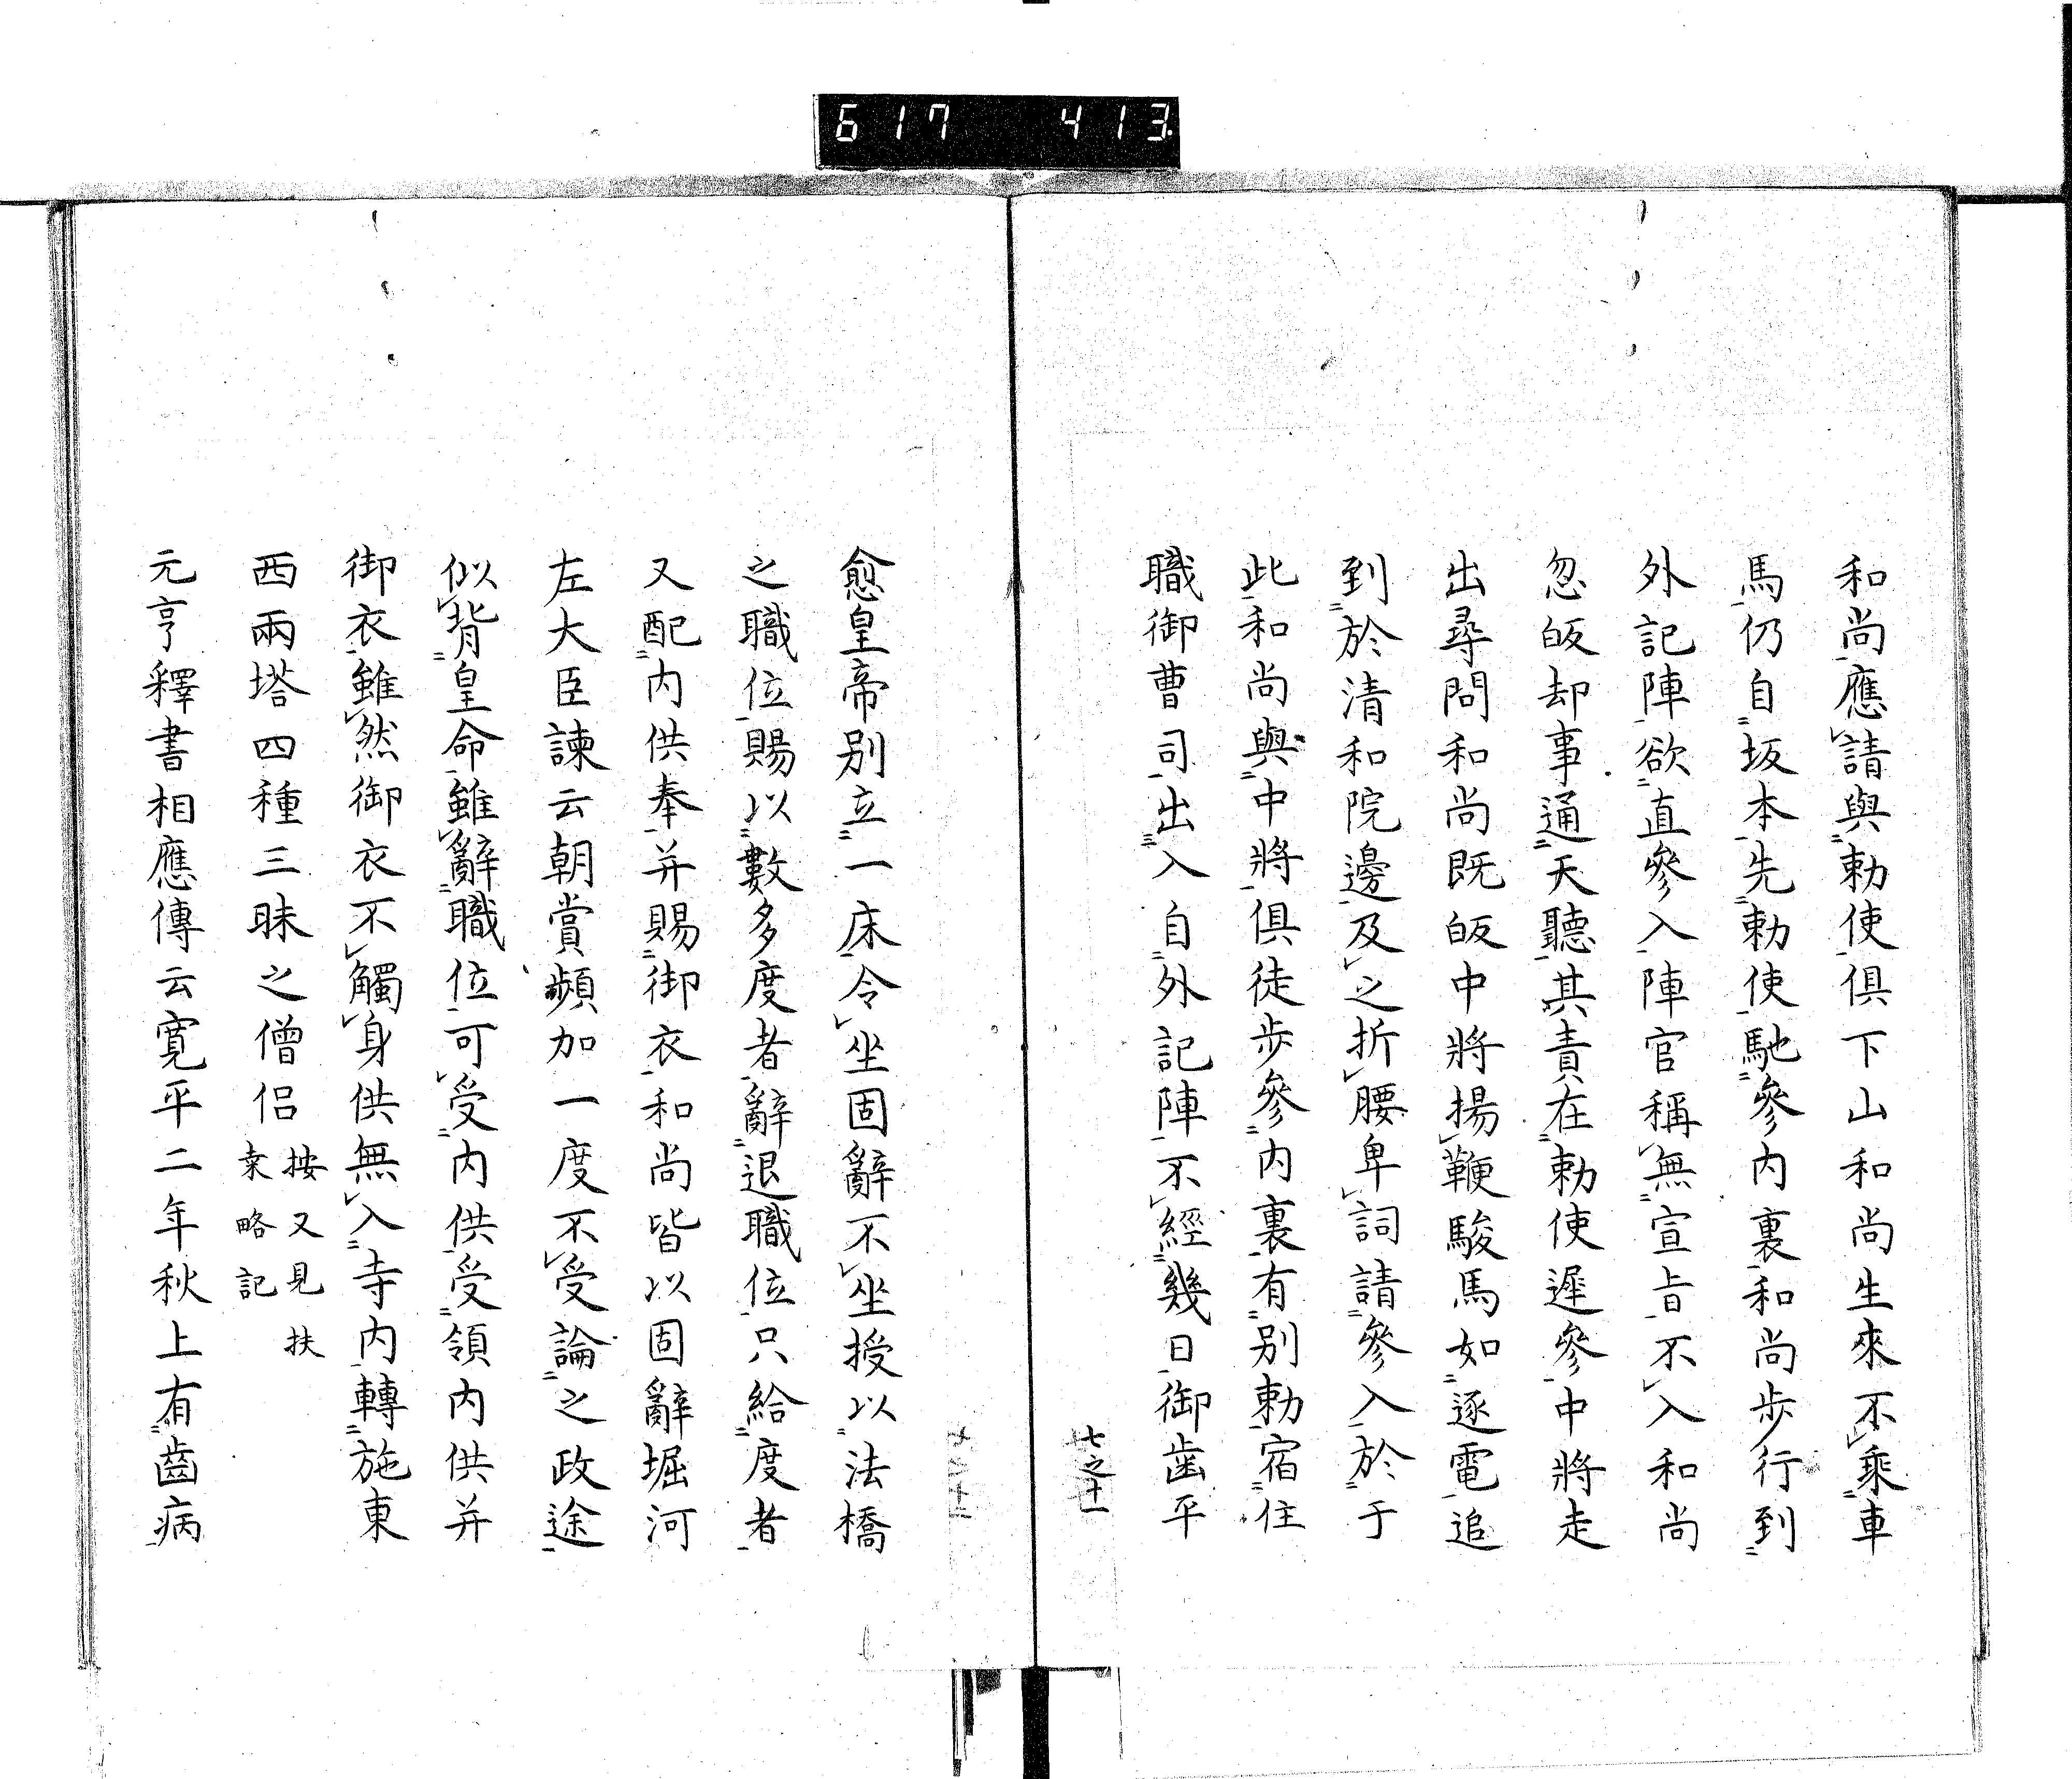 617 413
和尚應請與勅使俱下山和尚生來不乘車
馬仍自坂本先勅使馳參內裏和尚步行到
外記陣欲直參入陣官稱無宣旨不入和尚
忽皈却事通天聽其責在勅使遲參中將走
出尋問和尚既皈中將揚鞭駿馬如逐電追
到於清和院邊及之折腰卑詞請參入於于
此和尚與中將俱徒步參內裏有別勅宿住
職御曹司出入自外記陣不經幾日御歯平
七之十一
愈皇帝別立一床令坐固辭不坐授以法橋
之職位賜以數多度者辭退職位只給度者
又配內供奉并賜御衣和尚皆以固辭堀河
左大臣諫云朝賞頻加一度不受論之政途
似背皇命雖辭職位可受內供受領內供并
御衣雖然御衣不觸身供無入寺內轉施東
西兩塔四種三昧之僧侶
按又見扶
桒略記
元亨釋書相應傳云寛平二年秋上有齒病